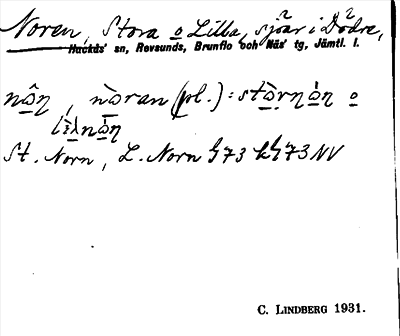 Noren, Stora o Lilla, sjöar i Dödre,
Huckås' sn, Revsunds, Brunflo och Näs' tg, Jämtl. l.
nôn, nòran (pl.): stòrnòn o
lìlnòn
St. Norn, L. Norn 473 k473 NV
C. LINDBERG 1931.